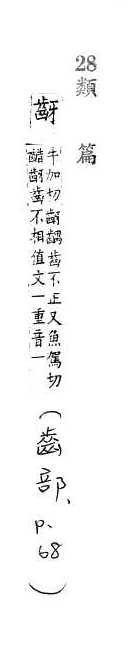 28類篇
齖
牛加切齖齵齒不正又魚駕切
齰齖齒不相值文一重音一
(齒部、p.68)